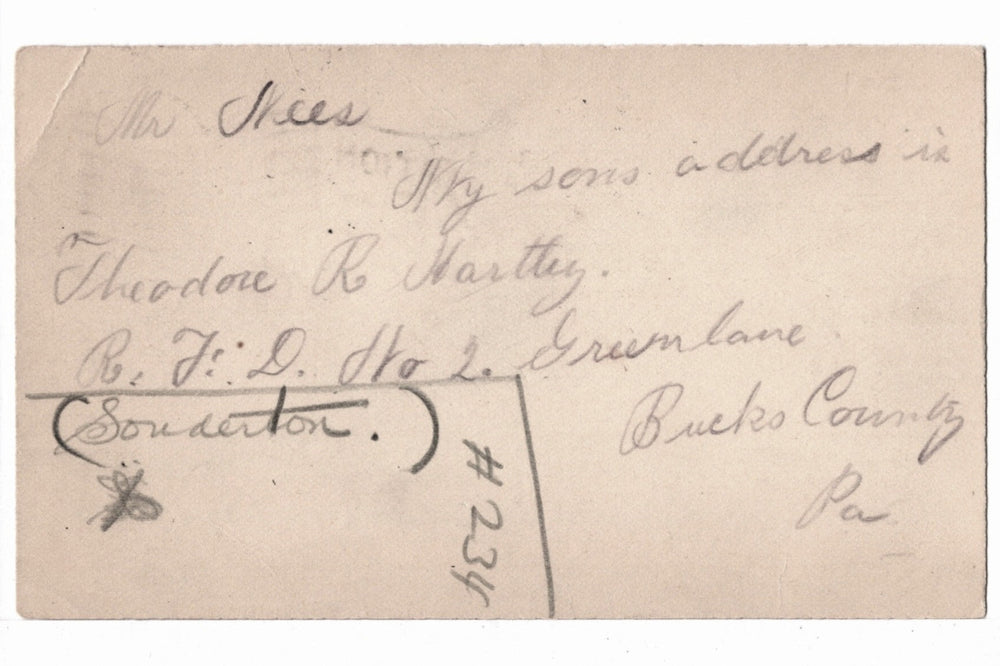 Mr Nees
My sons address is
Theodore R Hartley.
R. F. D. No 2. Greenlane
Bucks County
Pa
(Souderton.)
#234